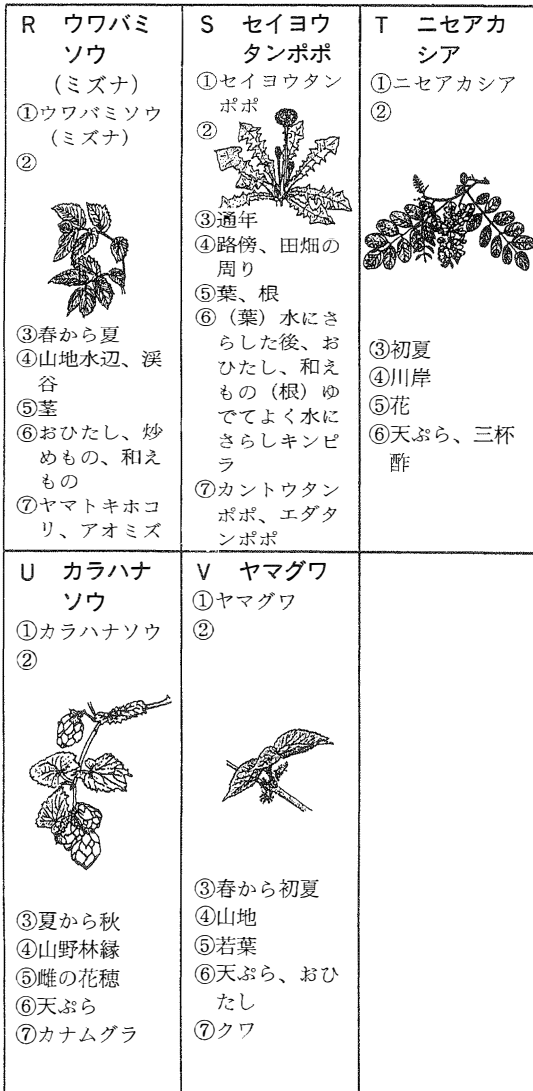 R ウワバミ
ソウ
(ミズナ)
①ウワバミソウ
(ミズナ)
②
③春から夏
④山地水辺、渓
谷
⑤茎
⑥おひたし、炒
めもの、和え
もの
⑦ヤマトキホコ
リ、アオミズ
S セイヨウ
タンポポ
①セイヨウタン
ポポ
②
③通年
④路傍、田畑の
周り
⑤葉、根
⑥(葉)水にさ
らした後、お
ひたし、和え
もの(根)ゆ
でてよく水に
さらしキンピ
ラ
⑦カントウタン
ポポ、エダタ
ンポポ
T ニセアカ
シア
①ニセアカシア
②
③初夏
④川岸
⑤花
⑥天ぷら、三杯
酢
U カラハナ
ソウ
①カラハナソウ
②
③夏から秋
④山野林縁
⑤雌の花穂
⑥天ぷら
⑦カナムグラ
V ヤマグワ
①ヤマグワ
②
③春から初夏
④山地
⑤若葉
⑥天ぷら、おひ
たし
⑦クワ